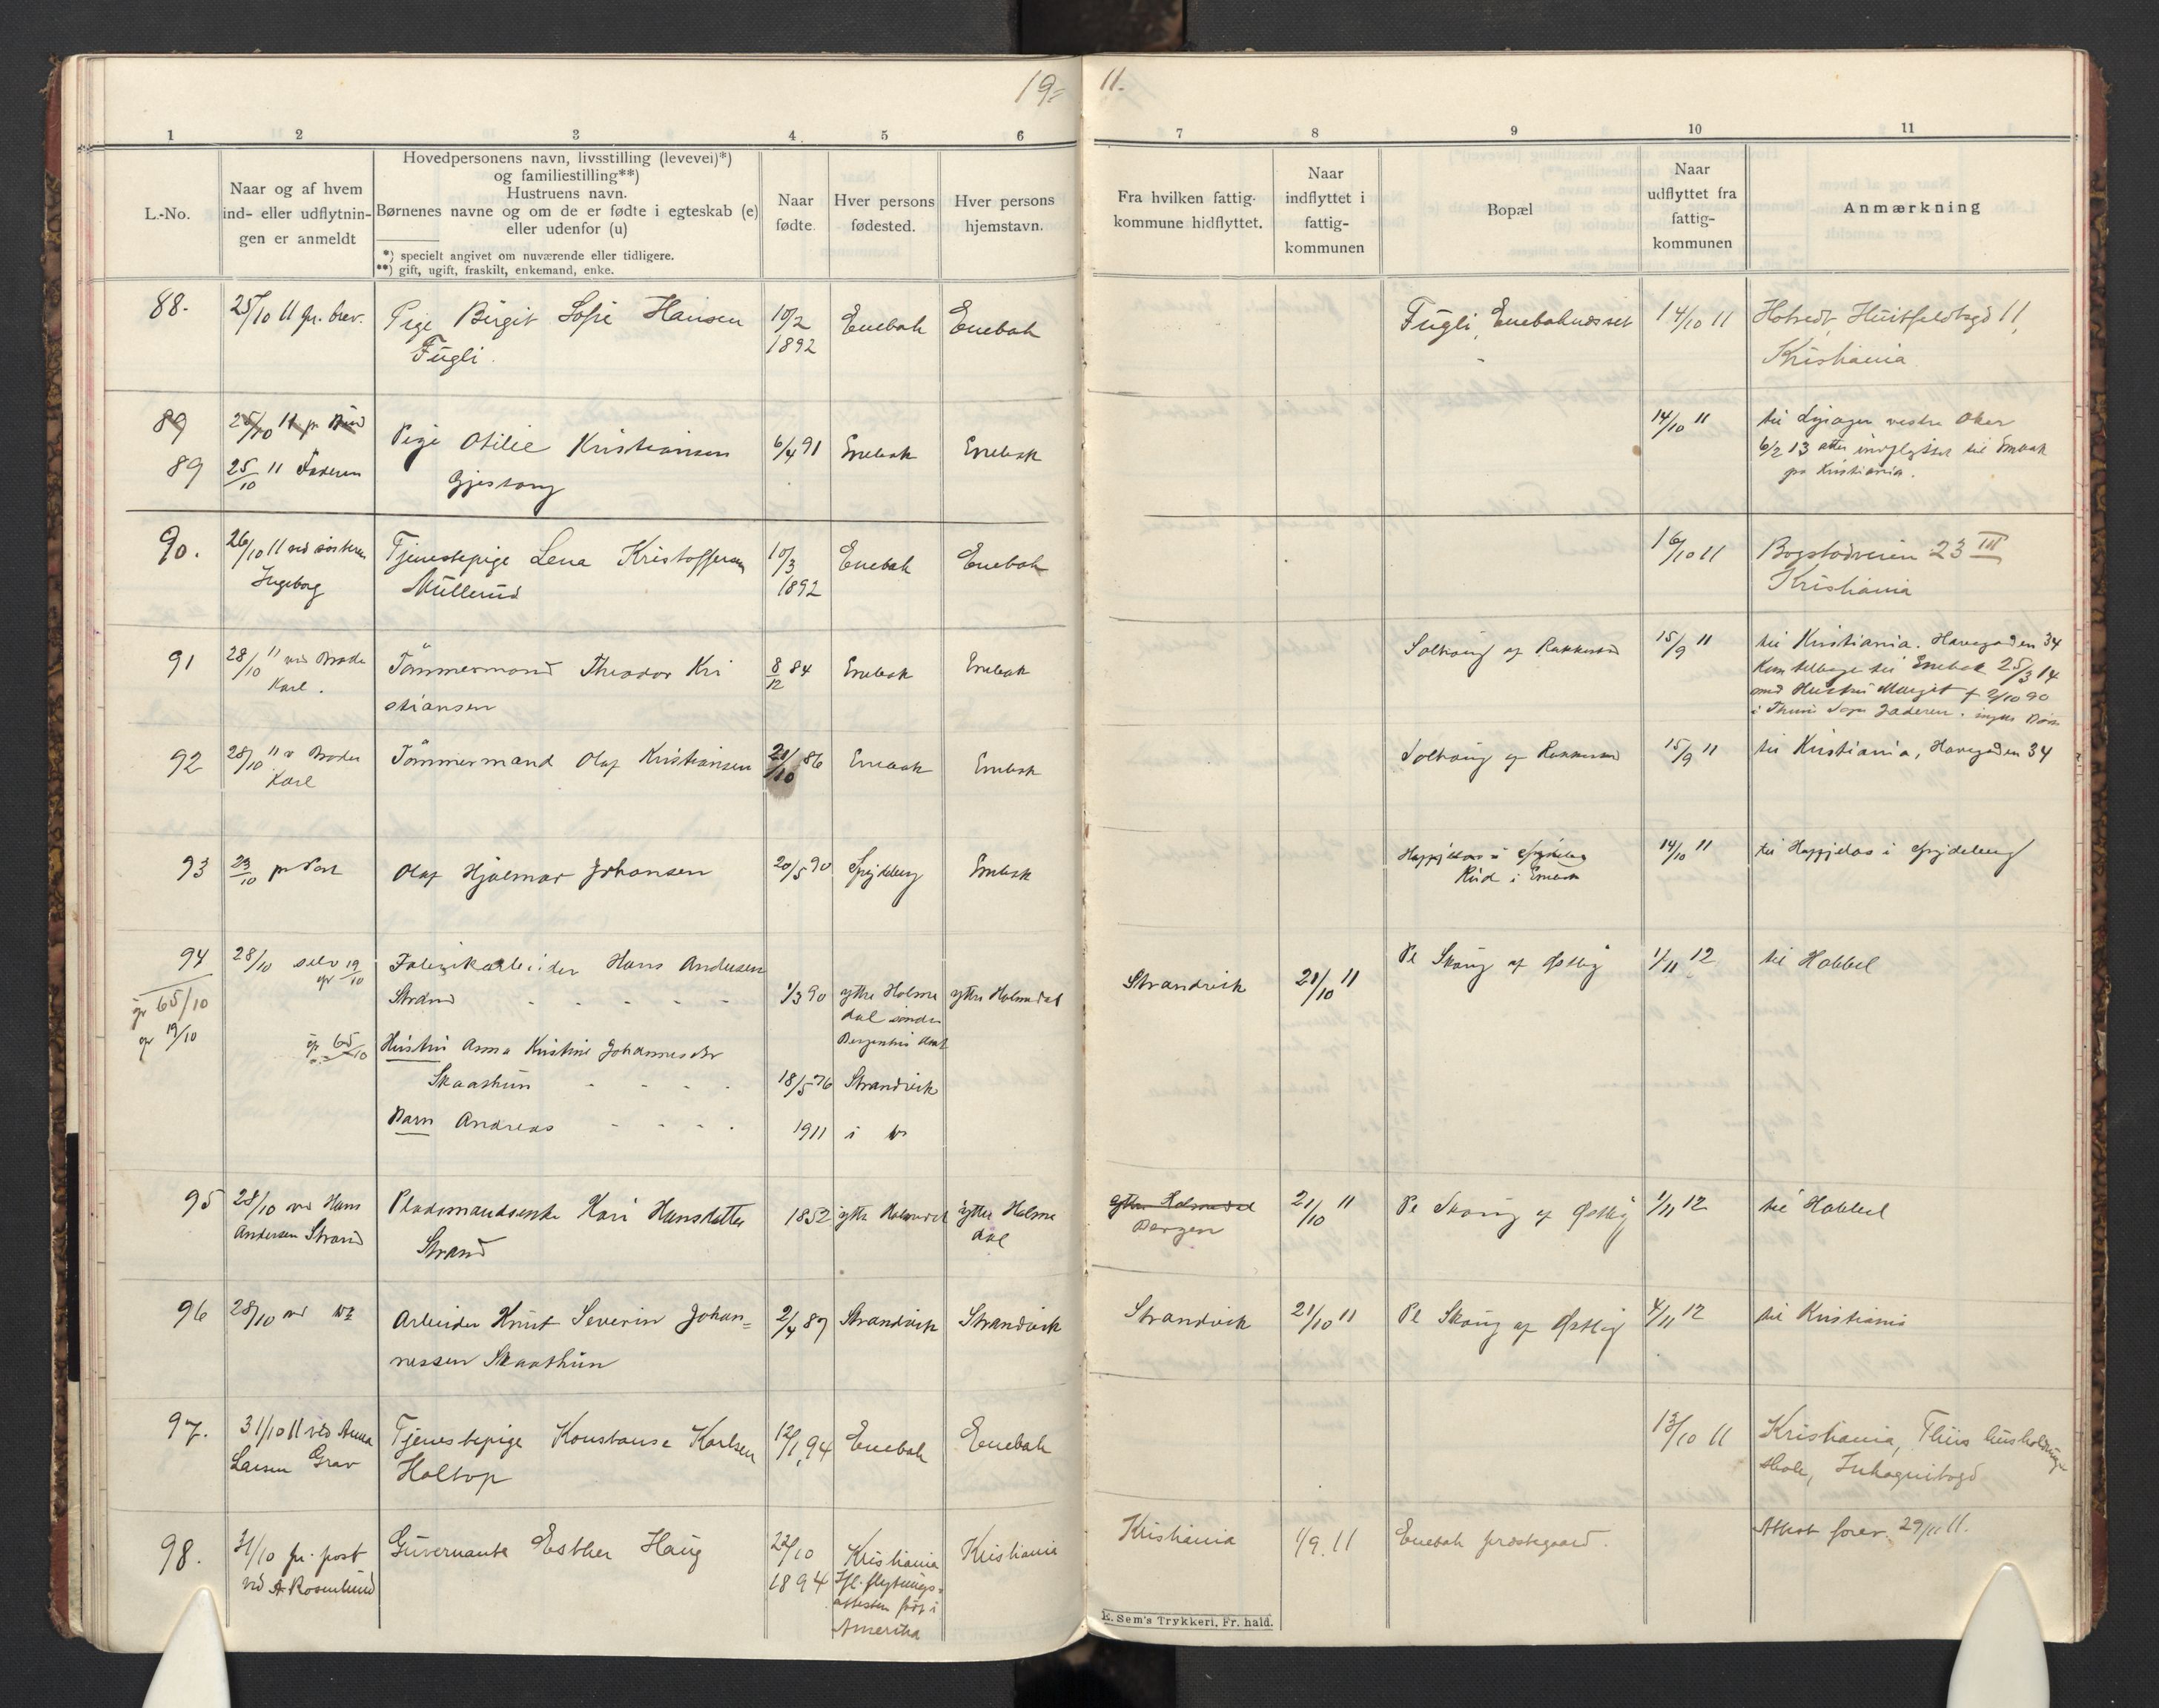 19= 11.
1 2 3 4 5 6 7 8 9 10 11
L.-No.
Naar og af hvem
ind- eller udflytnin-
gen er anmeldt
Hovedpersonens navn, livsstilling (levevei)*)
og familiestilling**)
Hustruens navn.
Børnenes navne og om de er fødte i egteskab (e)
eller udenfor (u)
*) specielt angivet om nuværende eller tidligere.
**) gift, ugift, fraskilt, enkemand, enke.
Naar
fødte.
Hver persons
fødested.
Hver persons
hjemstavn.
Fra hvilken fattig-
kommune hidflyttet.
Naar
indflyttet i
fattig-
kommunen
Bopæl
Naar
udflyttet fra
fattig-
kommunen
Anmærkning
88. 25/10 11 pr. brev. Pige Birgit Sofie Hansen 10/2 Enebak Enebak Fugli, 14/10 11 Huitfeldtsgd 11,
Fugli. 1892 Kristiania
89 25/10 11 pr Bud 14/10 11 til vestre Aker
Pige Otilie Kristiansen 6/4 91 Enebak Enebak 6/2 13 atter indflyttet til Enebak
89 25/10 11 Faderen Gjestang fra Kristiania.
90. 26/10 11 ved søsteren Tjenestepige Lena Kristoffersen 10/3 Enebak Enebak 16/10 11 Bogstadveien 23 III
Ingeborg Müllerud 1892 Kristiania
91 28/10 11 ved Broder Tömmermand Theodor Kri 8/12 84 Enebak Enebak Solhaug af Rakkestad 15/9 11 til Kristiania. Havegaden 34
Karl. stiansen Kom tilbage til Enebak 25/3 14
med Hustru Margit f 2/10 90
92 28/10 11 v Broder Tömmermand Olaf Kristiansen 21/10 86 Enebak Enebak Solhaug af Rakkestad 15/9 11 til Kristiania, Havegaden 34
Karl
93 23/10 pr Post Olaf Hjalmar Johansen 20/5 90 Spydeberg Enebak i Spydeberg 14/10 11 til i Spydeberg
Rud i Enebak
94 28/10 selv 19/10 Fabrikarbeider Hans Andersen Pl Skaug af Østby 1/11 12 til Hobbel
gr 65/10 Strand - - - - - 1/3 90 ytre Holme ytre Holmedal Strandvik 21/10 11
gr 19/10 dal søndre
gr 65/10 Hustru Anna Kristine Johannesdtr Bergenhus Amt
Skaathun - - - 18/5 76 Strandvik
Barn Andreas - - - . 1911 i do
95 28/10 ved Hans Pladsmandsenke Kari Hansdatter 1852 ytre Holmedal ytre Holme ytre Holmedal 21/10 11 Pl Skaug af Østby 1/11 12 til Hobbel
Andersen Strand Strand dal Bergen
96 28/10 ved do Arbeider Knut Severin Johan= 2/4 87 Strandvik Strandvik Strandvik 21/10 11 Pl Skaug af Østby 4/11 12 til Kristiania
nessen Skaathun
97. 31/10 11 ved Anna Tjenestepige Konstanse Karlsen 12/1 94 Enebak Enebak 13/10 11 Kristiania, Thiis husholdnings
Larsen Grav Holtop skole,
98. 31/10 pr. post Guvernante Esther Haug 22/10 Kristiania Kristiania Kristiania 1/9. 11 Enebak prestegaard. Attest forev. 29/11 11.
ved A Rosenlund 1894 Ifl. flytnings-
attesten født i
Amerika
E. Sem's Trykkeri, Fr. hald.